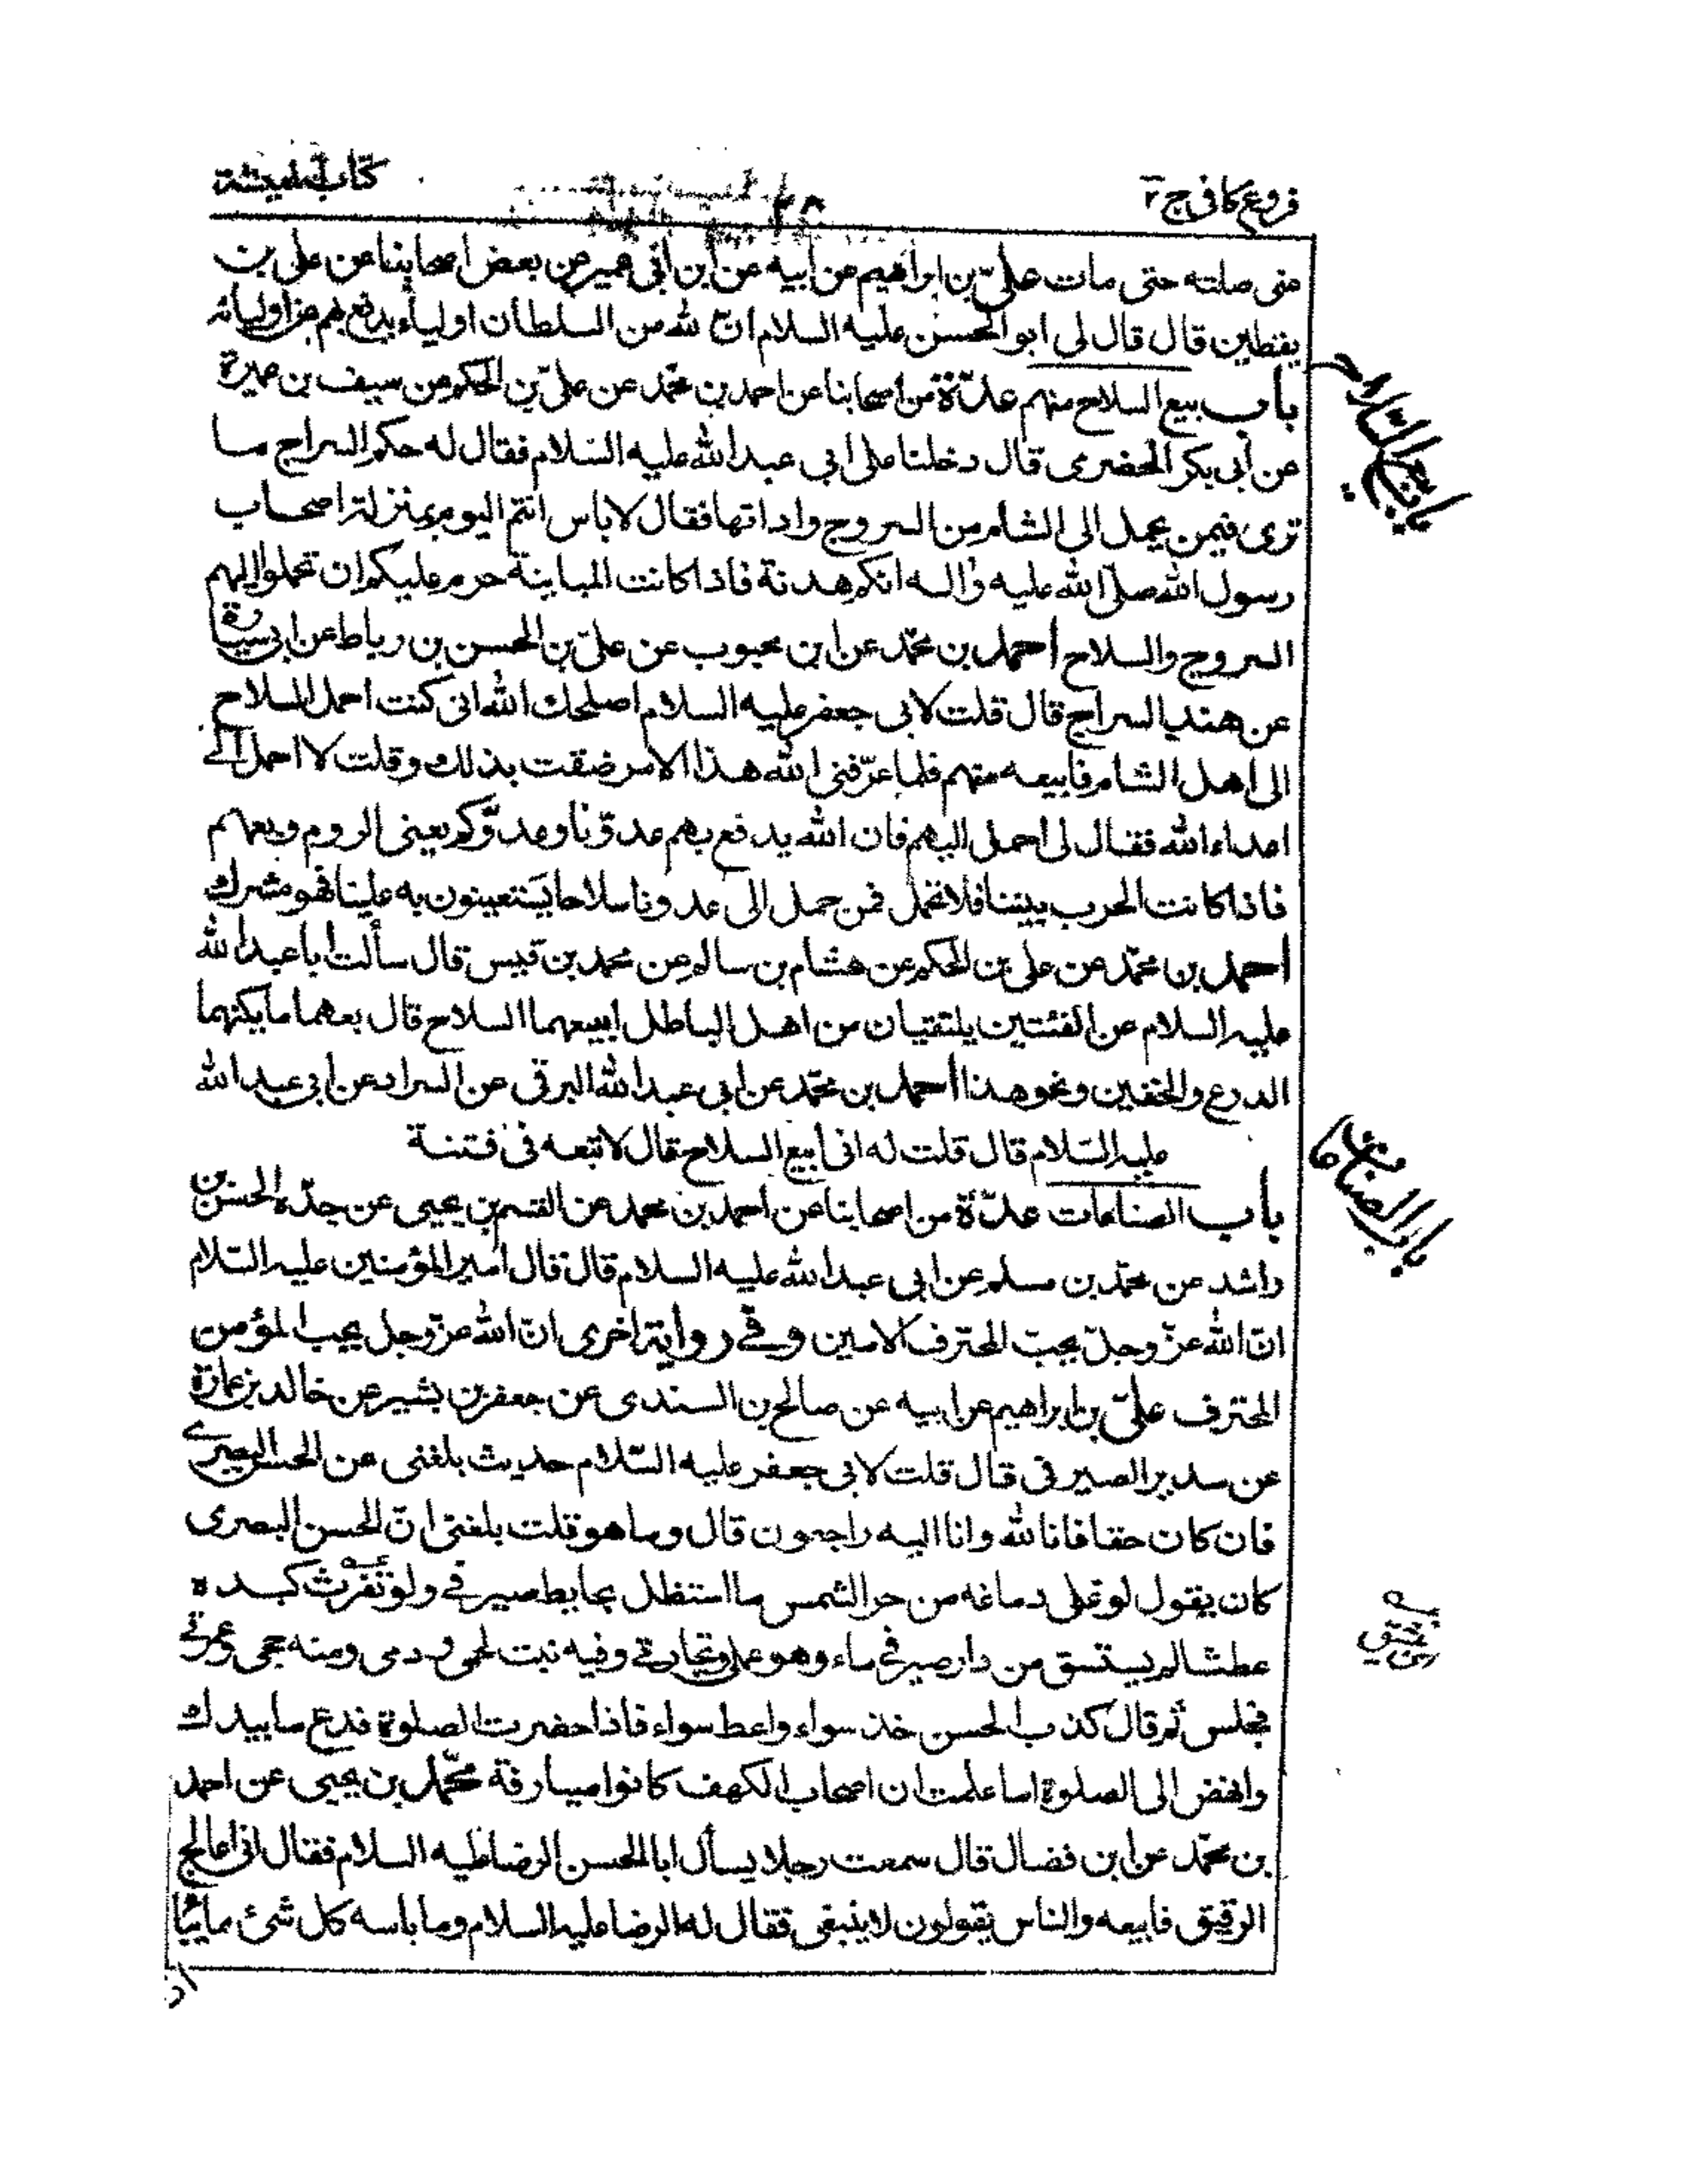 فروع كافى ج ٢
٢٨
كتاب المعيشة
منى صلته حتى مات علىّ بن ابراهيم عن أبيه عن ابن أبى عمير عن بعض اصحابنا عن على بن
يقطين قال قال لى ابو الحسن عليه السلام انّ لله مع السلطان اولياء يدفع بهم عن اوليائه
باب بيع السلاح منهم عدّة من اصحابنا عن احمد بن محمّد عن علىّ بن الحكم عن سيف بن عميرة
عن أبى بكر الحضرمى قال دخلنا على ابى عبد الله عليه السّلام فقال له حكم السراج ما
ترى فيمن يحمل الى الشام من السروج واداتها فقال لا باس انتم اليوم بمنزلة اصحاب
رسول الله صلّى الله عليه وآله انكم هدنة فاذا كانت المباينة حرم عليكم ان تحملوا اليهم
السروج والسلاح احمد بن محمّد عن ابن محبوب عن علىّ بن الحسن بن رباط عن ابى سيارة
عن هند السراج قال قلت لابى جعفر عليه السلام اصلحك الله انى كنت احمل السلاح
الى اهل الشام فابيعه منهم فلما عرّفنى الله هذا الامر ضقت بذلك وقلت لا احمل الى
اعداء الله فقال لى احمل اليهم فان الله يدفع بهم عدوّنا وعدوّكم يعنى الروم وبعهم
فاذا كانت الحرب بيننا فلا تحمل فمن حمل الى عدونا سلاحا يستعينون به علينا فهو مشرك
احمد بن محمّد عن على بن الحكم عن هشام بن سالم عن محمد بن قيس قال سألت ابا عبد الله
عليه السلام عن الفئتين يلتقيان من اهل الباطل ابيعهما السلاح قال بعهما ما يكنهما
الدرع والخفين ونحو هذا احمد بن محمّد عن ابى عبد الله البرقى عن السراد عن ابى عبد الله
عليه السّلام قال قلت له انى أبيع السلاح قال لا تبعه فى فتنة
باب الصناعات عدّة من اصحابنا عن احمد بن محمد عن القسم بن يحيى عن جدّه الحسن بن
راشد عن محمّد بن مسلم عن ابى عبد الله عليه السلام قال قال امير المؤمنين عليه السّلام
انّ الله عزّ وجلّ يحبّ المحترف الامين وفى رواية اخرى انّ الله عزّ وجل يحب المؤمن
المحترف علىّ بن ابراهيم عن ابيه عن صالح بن السندى عن جعفر بن بشير عن خالد بن عمارة
عن سدير الصيرفى قال قلت لابى جعفر عليه السّلام حديث بلغنى عن الحسن البصرى
فان كان حقا فانا لله وانا اليه راجعون قال وما هو قلت بلغنى انّ الحسن البصرى
كان يقول لو غلى دماغه من حر الشمس ما استظل بحايط صيرفى ولو تفرّث كبده
عطشا لم يستسق من دار صيرفى ماء وهو عملى وتجارتى وفيه نبت لحمى ودمى ومنه حجى وعمرتى
فجلس ثم قال كذب الحسن خذ سواء واعط سواء فاذا حضرت الصلوة فدع ما بيدك
وانهض الى الصلوة اما علمت ان اصحاب الكهف كانوا صيارفة محمّد بن يحيى عن احمد
بن محمّد عن ابن فضال قال سمعت رجلا يسأل ابا الحسن الرضا عليه السلام فقال انى اعالج
الرقيق فابيعه والناس يقولون لا ينبغى فقال له الرضا عليه السلام وما باسه كل شئ مما يباع
باب بيع السلاح منهم
باب الصناعات